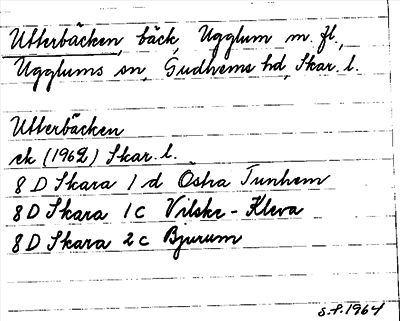 Utterbäcken, bäck, Ugglum m. fl.,
Ugglums sn, Gudhems hd, Skar. l.
Utterbäcken
ek (1962) Skar. l.
8 D Skara 1 d Östra Tunhem
8 D Skara 1 c Vilske-Kleva
8 D Skara 2 c Bjurum
S.F. 1964